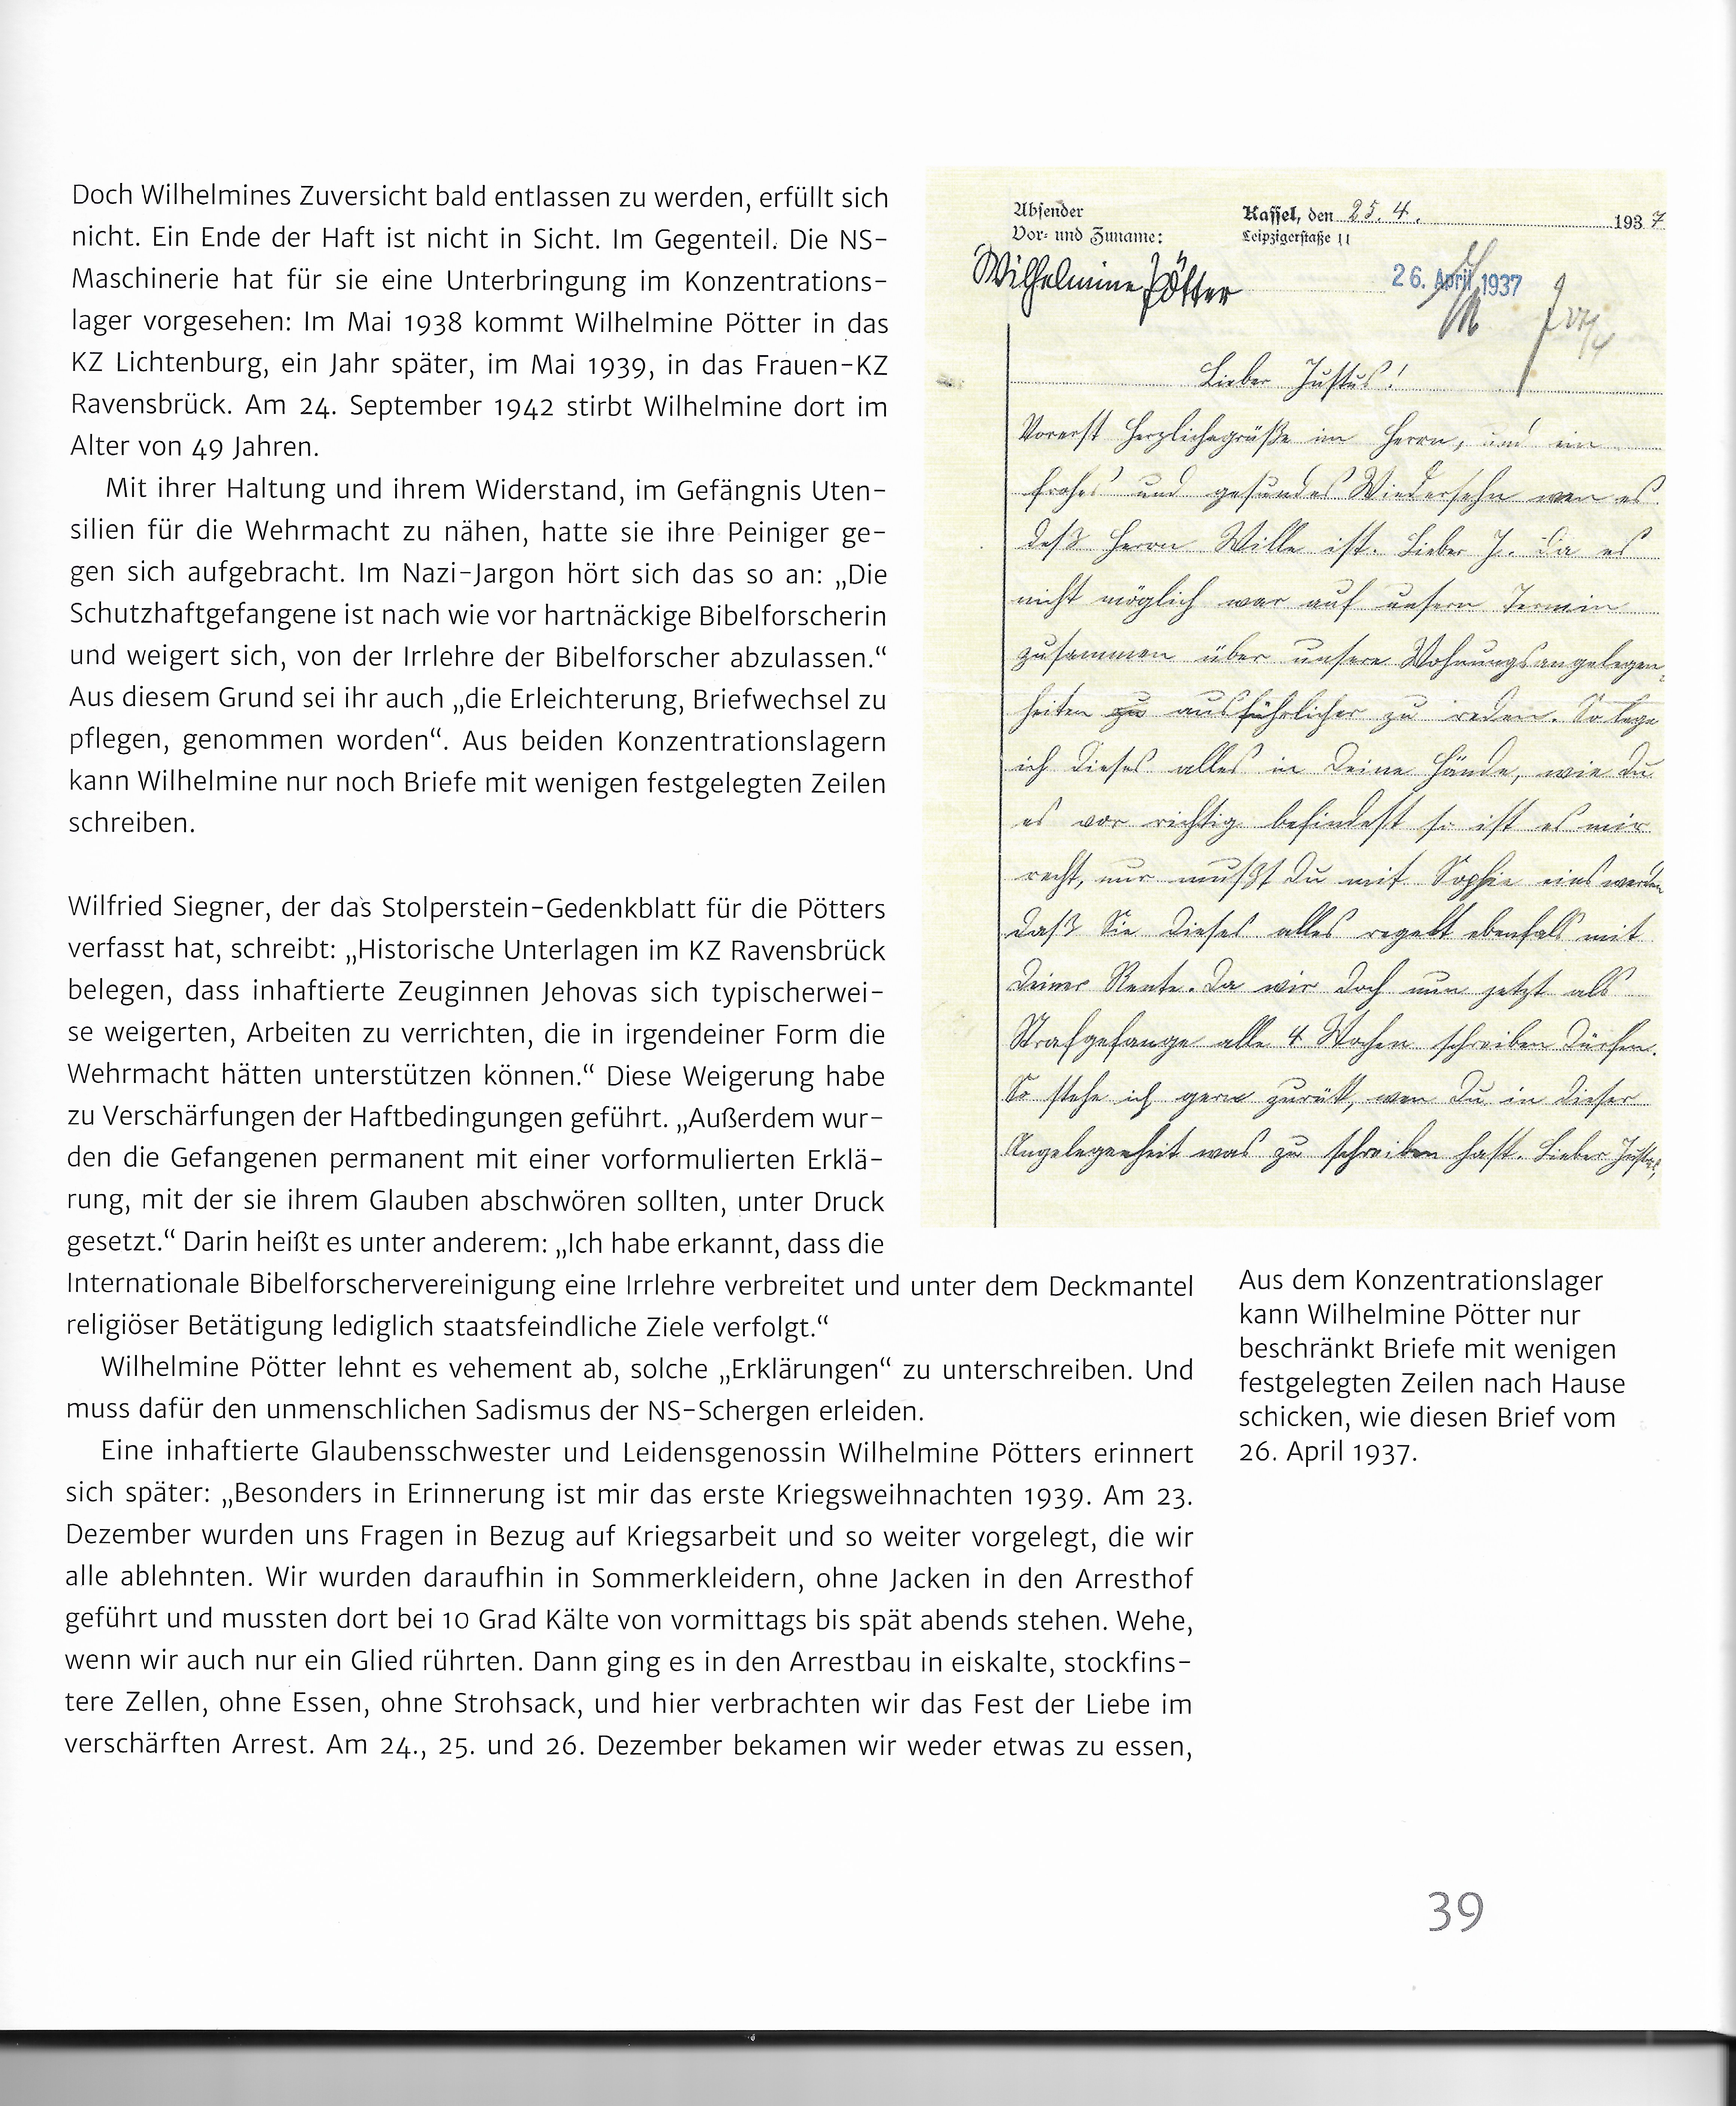 Doch Wilhelmines Zuversicht bald entlassen zu werden, erfüllt sich
nicht. Ein Ende der Haft ist nicht in Sicht. Im Gegenteil. Die NS-
Maschinerie hat für sie eine Unterbringung im Konzentrations-
lager vorgesehen: Im Mai 1938 kommt Wilhelmine Pötter in das
KZ Lichtenburg, ein Jahr später, im Mai 1939, in das Frauen-KZ
Ravensbrück. Am 24. September 1942 stirbt Wilhelmine dort im
Alter von 49 Jahren.
Mit ihrer Haltung und ihrem Widerstand, im Gefängnis Uten-
silien für die Wehrmacht zu nähen, hatte sie ihre Peiniger ge-
gen sich aufgebracht. Im Nazi-Jargon hört sich das so an: „Die
Schutzhaftgefangene ist nach wie vor hartnäckige Bibelforscherin
und weigert sich, von der Irrlehre der Bibelforscher abzulassen.“
Aus diesem Grund sei ihr auch „die Erleichterung, Briefwechsel zu
pflegen, genommen worden“. Aus beiden Konzentrationslagern
kann Wilhelmine nur noch Briefe mit wenigen festgelegten Zeilen
schreiben.
Wilfried Siegner, der das Stolperstein-Gedenkblatt für die Pötters
verfasst hat, schreibt: „Historische Unterlagen im KZ Ravensbrück
belegen, dass inhaftierte Zeuginnen Jehovas sich typischerwei-
se weigerten, Arbeiten zu verrichten, die in irgendeiner Form die
Wehrmacht hätten unterstützen können.“ Diese Weigerung habe
zu Verschärfungen der Haftbedingungen geführt. „Außerdem wur-
den die Gefangenen permanent mit einer vorformulierten Erklä-
rung, mit der sie ihrem Glauben abschwören sollten, unter Druck
gesetzt.“ Darin heißt es unter anderem: „Ich habe erkannt, dass die
Internationale Bibelforschervereinigung eine Irrlehre verbreitet und unter dem Deckmantel
religiöser Betätigung lediglich staatsfeindliche Ziele verfolgt.“
Wilhelmine Pötter lehnt es vehement ab, solche „Erklärungen“ zu unterschreiben. Und
muss dafür den unmenschlichen Sadismus der NS-Schergen erleiden.
Eine inhaftierte Glaubensschwester und Leidensgenossin Wilhelmine Pötters erinnert
sich später: „Besonders in Erinnerung ist mir das erste Kriegsweihnachten 1939. Am 23.
Dezember wurden uns Fragen in Bezug auf Kriegsarbeit und so weiter vorgelegt, die wir
alle ablehnten. Wir wurden daraufhin in Sommerkleidern, ohne Jacken in den Arresthof
geführt und mussten dort bei 10 Grad Kälte von vormittags bis spät abends stehen. Wehe,
wenn wir auch nur ein Glied rührten. Dann ging es in den Arrestbau in eiskalte, stockfins-
tere Zellen, ohne Essen, ohne Strohsack, und hier verbrachten wir das Fest der Liebe im
verschärften Arrest. Am 24., 25. und 26. Dezember bekamen wir weder etwas zu essen,
Absender
Vor- und Zuname:
Wilhelmine Pötter
Kassel, den 25. 4. 1937
Leipzigerstraße 11
26. April 1937
Lieber Justus!
Vorerst Herzlichegrüße im Herrn, und ein
frohes und gesundes Wiedersehn wen es
deß Herrn Wille ist. Lieber J. Da es
nicht möglich war auf unsern Termin
zusammen über unsere Wohnungsangelegen
heiten zu ausführlicher zu reden. So lege
ich dieses alles in Deine Hände, wie Du
es vor richtig befindest so ist es mir
recht, nur mußt Du mit Sophie eins werden
daß Sie dieses alles regelt ebenfalls mit
Deiner Rente. Da wir doch nun jetzt als
Strafgefange alle 4 Wochen schreiben dürfen.
So stehe ich gern zurükk, wen Du in dieser
Angelegenheit was zu schreiben hast. Lieber Justus,
Aus dem Konzentrationslager
kann Wilhelmine Pötter nur
beschränkt Briefe mit wenigen
festgelegten Zeilen nach Hause
schicken, wie diesen Brief vom
26. April 1937.
39